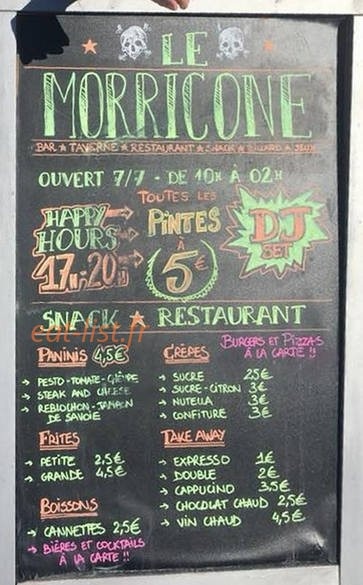 LE
MORRICONE
BAR ★ TAVERNE ★ RESTAURANT ★ SNACK ★ BILLARD ★ JEUX
OUVERT 7/7 - DE 10H À 02H
HAPPY
HOURS
17H-20H
TOUTES LES
PINTES
À
5€
DJ
SET
SNACK ★ RESTAURANT
eat-list.fr
BURGERS ET PIZZAS
À LA CARTE !!
PANINIS 4,5€
→ PESTO-TOMATE-CHÈVRE
→ STEAK AND CHEESE
→ REBLOCHON-JAMBON
DE SAVOIE
CRÊPES
→ SUCRE 2,5€
→ SUCRE-CITRON 3€
→ NUTELLA 3€
→ CONFITURE 3€
FRITES
→ PETITE 2.5€
→ GRANDE 4,5€
TAKE AWAY
→ EXPRESSO 1€
→ DOUBLE 2€
→ CAPPUCINO 3,5€
→ CHOCOLAT CHAUD 2,5€
→ VIN CHAUD 4,5€
BOISSONS
→ CANNETTES 2,5€
→ BIÈRES ET COCKTAILS
À LA CARTE !!